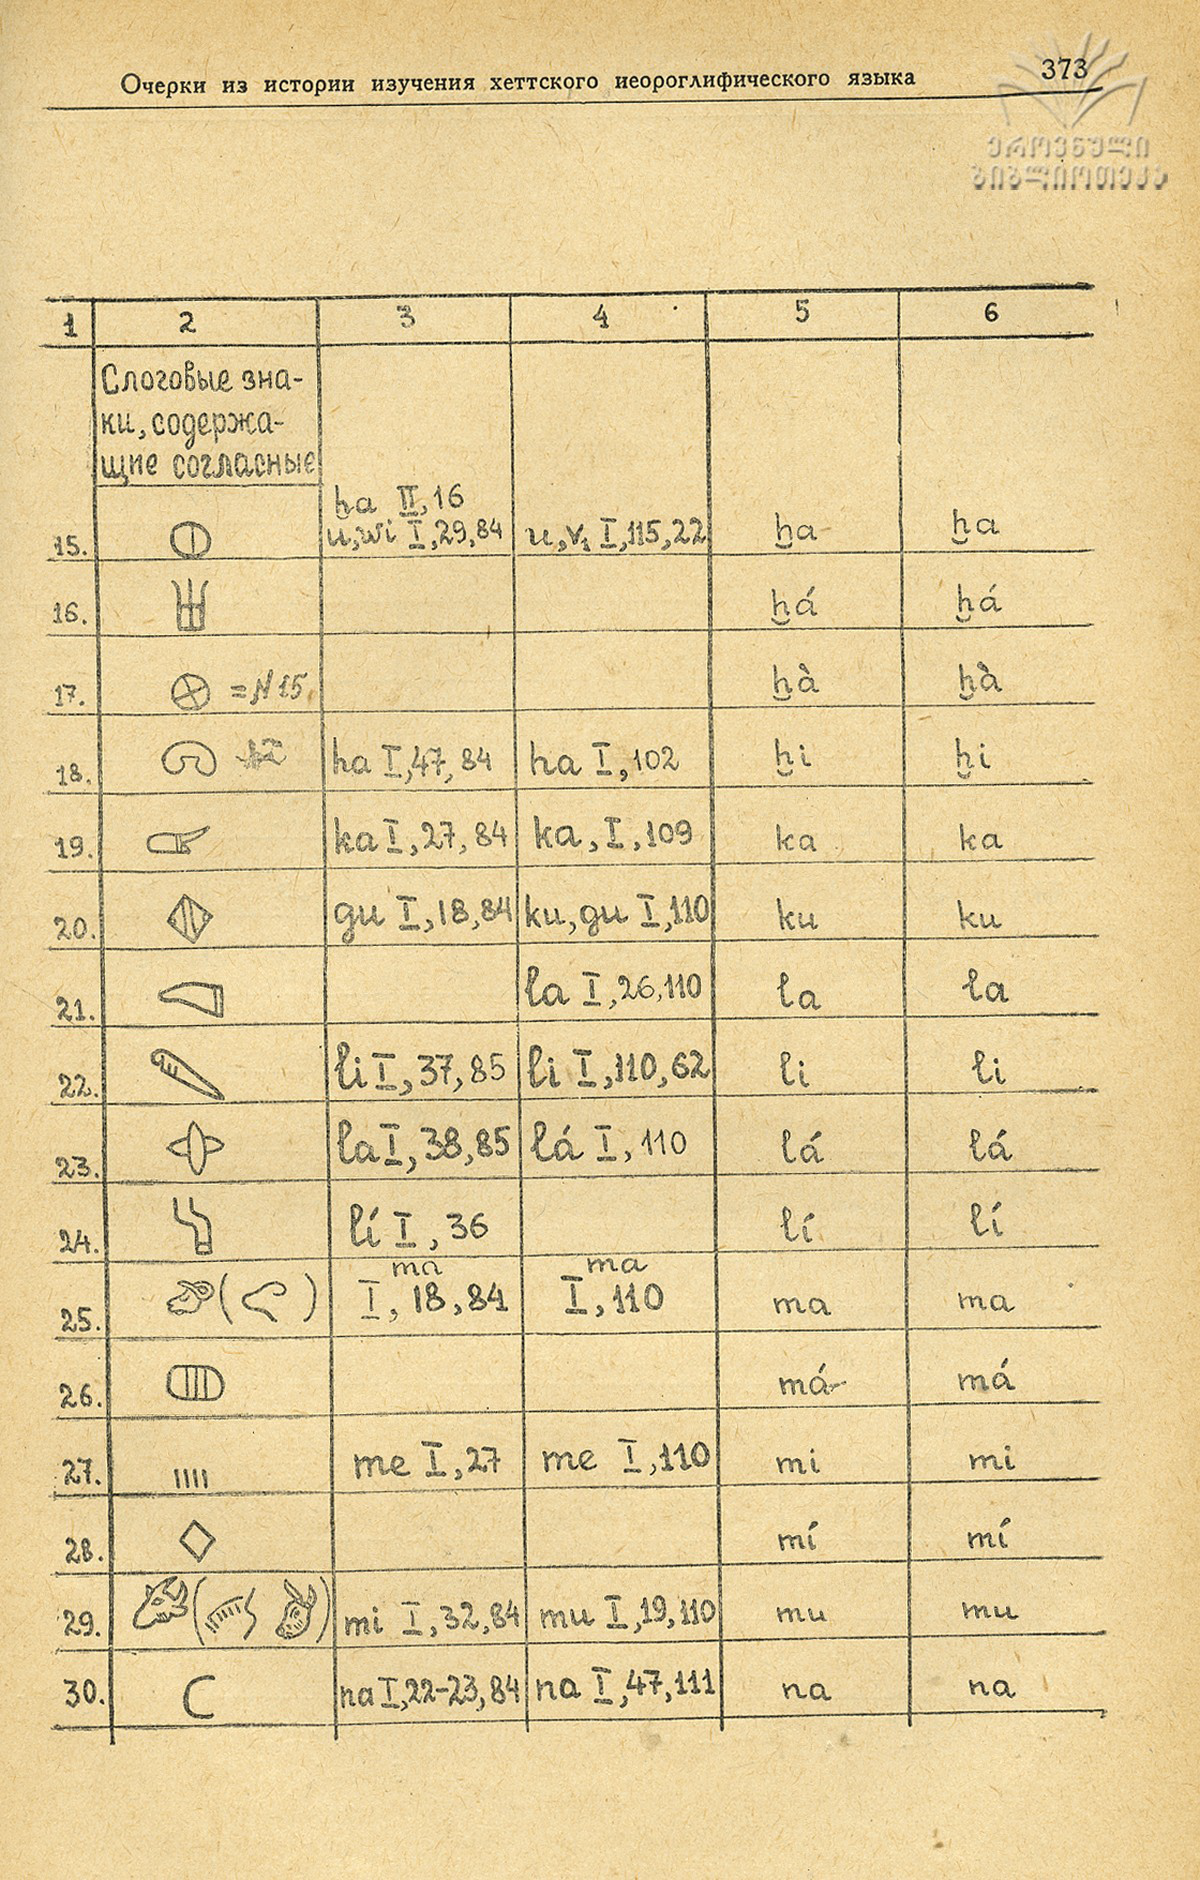 Очерки из истории изучения хеттского иеороглифического языка 373
ეროვნული
ბიბლიოთეკა
1 2 3 4 5 6
Слоговые зна-
ки, содержа-
щие согласные
ḫa II,16
15. u,wi I,29,84 u,v₁ I,115,22 ḫa ḫa
16. ḫá ḫá
17. =N15 ḫà ḫà
18. ha I,47,84 ha I,102 ḫi ḫi
19. ka I,27,84 ka, I,109 ka ka
20. gu I,18,84 ku,gu I,110 ku ku
21. la I,26,110 la la
22. li I,37,85 li I,110,62 li li
23. la I,38,85 lá I,110 lá lá
24. lí I,36 lí lí
ma ma
25. ( ) I,18,84 I,110 ma ma
26. má má
27. me I,27 me I,110 mi mi
28. mí mí
29. ( ) mi I,32,84 mu I,19,110 mu mu
30. na I,22-23,84 na I,47,111 na na